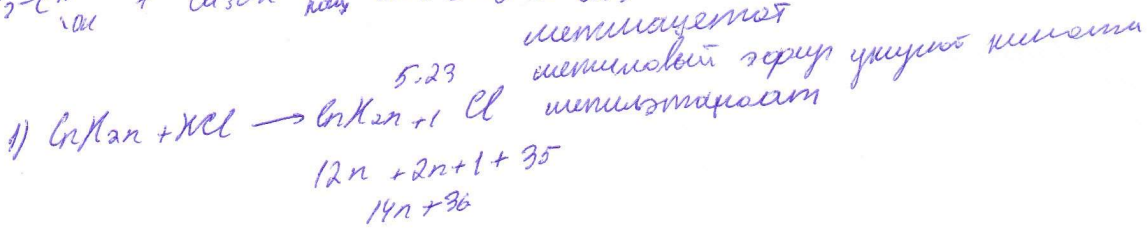 OH + CH3OH
метилацетат
5.23 метиловый эфир уксусной кислоты
1) CnH2n + HCl → CnH2n+1 Cl метилэтаноат
12n + 2n + 1 + 35
14n + 36